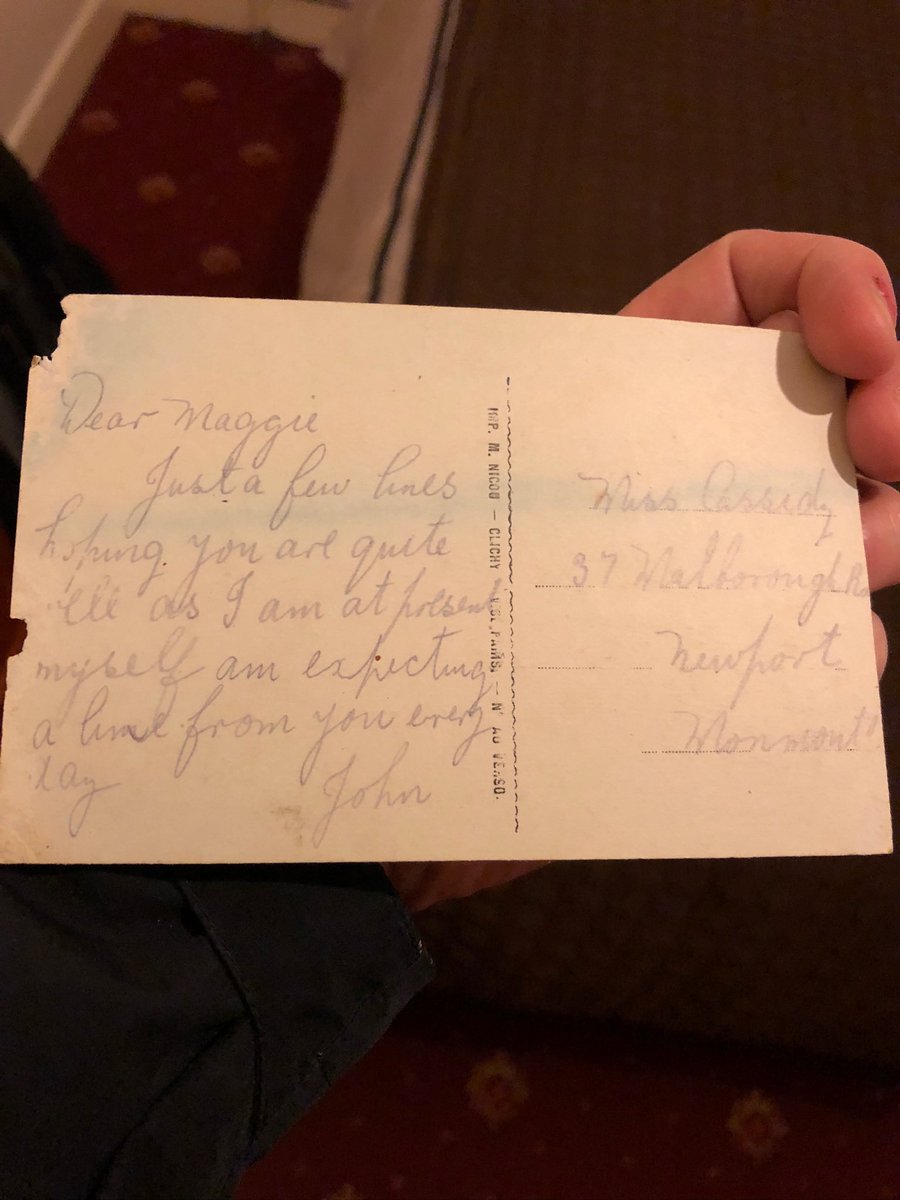 Dear Maggie
Just a few lines
hoping you are quite
'ell as I am at present
myself am expecting
a line from you every
day
John
IMP. M. NICOD — CLICHY PARIS. — N° AU VERSO.
Miss Cassidy
37 Malborough Rd
Newport
Monmont"